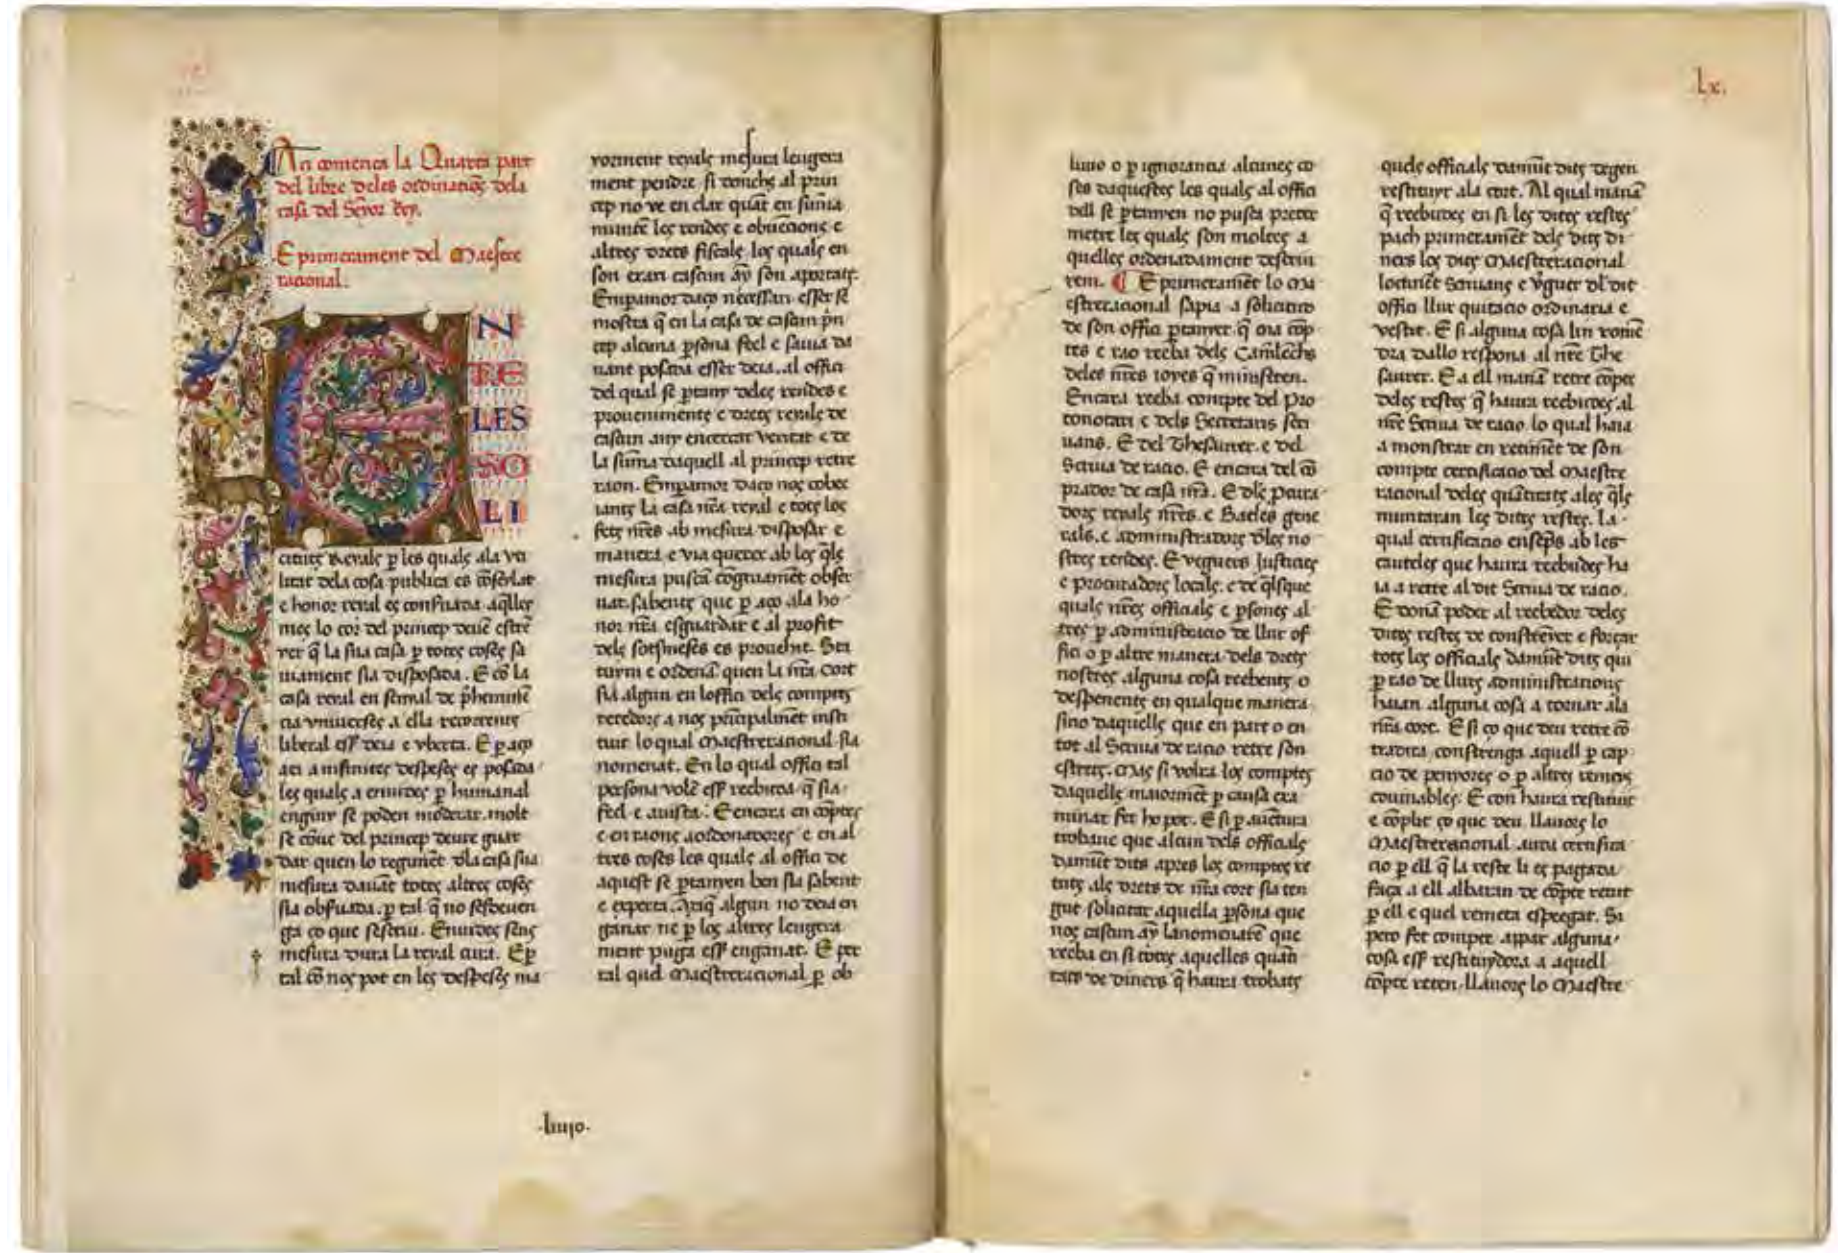 Aci comença la Quarta part
del libre deles ordinaciõs dela
casa del Senyor Rey.
E primerament del Maestre
racional.
E N
TE
LES
SO
LI
cituts Reyals p les quals ala vti
litat dela cosa publica es cõserlat
e honor reyal es conseruada aqlles
mes lo cor del princep deuẽ estrẽ
yer q̃ la sua casa p totes coses sa
uiament sia disposada. E cõ la
casa reyal en semal de p̃heminẽ
cia vniuerses a ella recorrents
liberal ess deia e vberta. E p aço
aci a infinites despeses es posada
les quals a enuides p humanal
enginy se poden moderar. molt
se coue del princep deure guar
dar quen lo regimẽt dla casa sua
mesura dauãt totes altres coses
sia obseruada. p tal q̃ no sesdeuen
ga ço que sesdeu. Enuides sens
mesura dura la reyal cura. E p
tal cõ nos pot en les despeses ma
iorment reyals mesura leugera
ment pendre. si donchs al prin
cep no ve en clar quãt en suma
munte les rendes e obuẽcions e
altres drets fiscals. los quals en
son erari cascun ãy son aportats.
Emperamor daço necessari esser se
mostra q̃ en la casa de cascun prĩn
cep alcuna psona feel e sauia da
uant posada esser deia. al offici
del qual se ptany deles rendes e
proueniments e drets reyals de
cascun any encercar veritat e de
la suma daquell al princep retre
raon. Emperamor daço nos cobee
iants la casa nr̃a reyal e tots los
fets nr̃es ab mesura disposar e
manera e via querer ab les q̃ls
mesura puscã cõgruament obser
uar. sabents que p aço ala ho
nor nr̃a esguardar e al profit
dels sotsmeses es prouehit. Sta
tuim e ordenã quen la nr̃a cort
sia algun en loffici dels comptes
reedors a nos principalmẽt insti
tuit. lo qual Maestreracional sia
nomenat. En lo qual offici tal
persona volẽ ess reebuda q̃ sia
feel e auista. E encara en comptes
e en raons aordonadores e en al
tres coses les quals al offici de
aquest se ptanyen ben sia sabent
e experta. Axiq̃ algun no deia en
ganar ne p los altres leugera
ment puga ess enganat. E per
tal quel Maestreracional p ob
.lviiij.
lx.
liuio o p ignorancia alcunes co
ses daquestes les quals al offici
dell se ptanyen no pusca preter
metre les quals son moltes a
quelles ordenadament destriu
rem. E primeramẽt lo ma
estreracional sapia a solicitut
de son offici ptanyer. q̃ oia cõp
tes e rao reeba dels Camlẽchs
deles nr̃es ioyes q̃ ministren.
Encara reeba compte del Pro
tonotari e dels Secretaris scri
uans. E del Thesaurer. e del
Scriua de racio. E encara del cõ
prador de casa nr̃a. E dls Procura
dors reyals nr̃es. e Batles gene
rals. e administradors dles no
stres rendes. E veguers Justicies
e procuradors locals. e de q̃lsque
quals nr̃es officials e psones al
tres p administracio de llur of
fici o p altre manera dels drets
nostres alguna cosa reebents o
despenents en qualque manera
sino daquells que en part o en
tot al Scriua de racio retre son
estrets. Mas si volra los comptes
daquells maiormẽt p causa exa
minar fer ho pot. E si p auẽtura
trobaue que alcun dels officials
damũt dits apres los comptes re
tuts als drets de nr̃a cort sia ten
gut solicitar aquella psona que
nos cascun ãy lanomenatẽ que
reeba en si totes aquelles quãti
tats de diners q̃ haura trobats
quels officials damũt dits degen
restituyr ala cort. Al qual manã
q̃ reebudes en si les dites restes
pach primeramẽt dels dits di
ners los dits Maestreracional
lochtinẽt Scriuans e vguer dl dit
offici llur quitacio ordinaria e
vestit. E si alguna cosa lin romẽ
dra dallo respona al nr̃e The
saurer. E a ell manã retre cõpte
deles restes q̃ haura reebudes al
nr̃e Scriua de racio. lo qual haia
a monstrar en retimẽt de son
compte certificacio del Maestre
racional deles quãtitats ales q̃ls
muntaran les dites restes. La
qual certificacio ensẽps ab les
cauteles que haura reebudes ha
ia a retre al dit Scriua de racio.
E donã poder al reebedor deles
dites restes de constrẽyer e forçar
tots los officials damũt dits qui
p rao de llurs administracions
haian alguna cosa a tornar ala
nr̃a cort. E si ço que deu retre cõ
tradira. constrenga aquell p cap
cio de penyores o p altres remeis
couinables. E con haura restituit
e cõplit ço que deu llauors lo
Maestreracional aura certifica
cio p ell q̃ la reste li es pagada
faça a ell albaran de cõpte retut
p ell e quel remeta espeegat. Si
pero fet compte appar alguna
cosa ess restituydora a aquell
cõpte reten. llauors lo Maestre